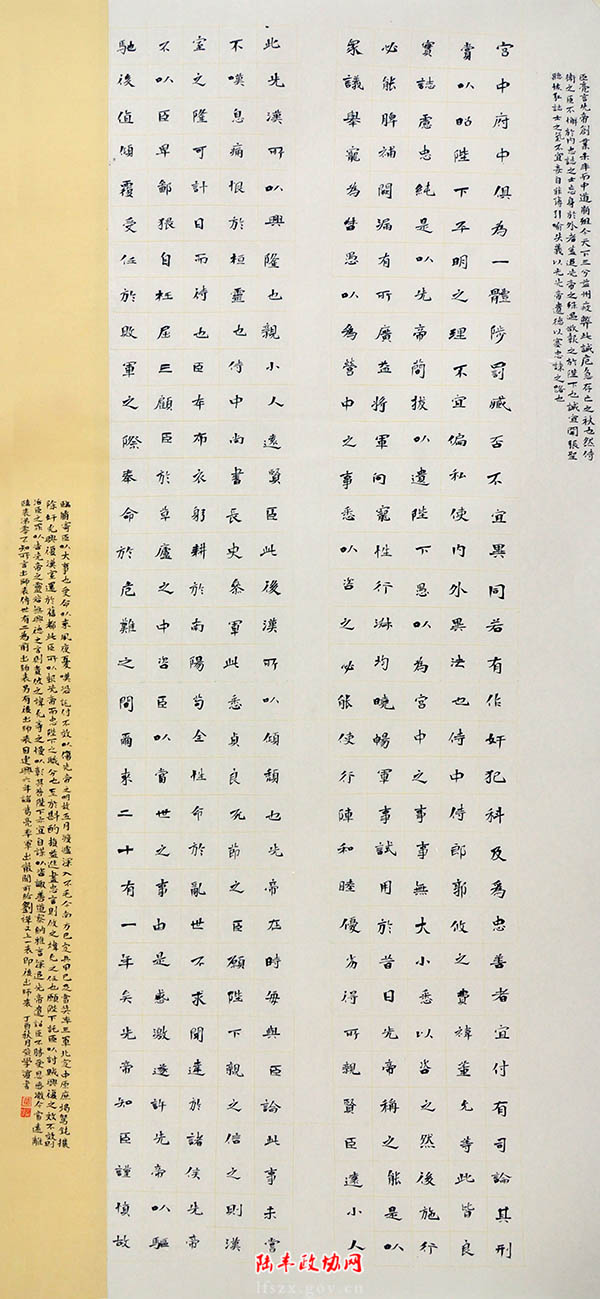 臣亮言先帝創業未半而中道崩殂今天下三分益州疲弊此誠危急存亡之秋也然侍
衛之臣不懈於內忠誌之士忘身於外者蓋追先帝之殊遇欲報之於陛下也誠宜開張聖
聽恢弘誌士之氣不宜妄自菲薄引喻失義以光先帝遺德以塞忠諫之路也
宮中府中俱為一體陟罰臧否不宜異同若有作奸犯科及為忠善者宜付有司論其刑
賞以昭陛下平明之理不宜偏私使內外異法也侍中侍郎郭攸之費禕董允等此皆良
實誌慮忠純是以先帝簡拔以遺陛下愚以為宮中之事事無大小悉以咨之然後施行
必能裨補闕漏有所廣益將軍向寵性行淑均曉暢軍事試用於昔日先帝稱之能是以
眾議舉寵為督愚以為營中之事悉以咨之必能使行陣和睦優劣得所親賢臣遠小人
此先漢所以興隆也親小人遠賢臣此後漢所以傾頹也先帝在時每與臣論此事未嘗
不嘆息痛恨於桓靈也侍中尚書長史參軍此悉貞良死節之臣願陛下親之信之則漢
室之隆可計日而待也臣本布衣躬耕於南陽苟全性命於亂世不求聞達於諸侯先帝
不以臣卑鄙猥自枉屈三顧臣於草廬之中咨臣以當世之事由是感激遂許先帝以驅
馳後值傾覆受任於敗軍之際奉命於危難之間爾來二十有一年矣先帝知臣謹慎故
臨崩寄臣以大事也受命以來夙夜憂嘆恐託付不效以傷先帝之明故五月渡瀘深入不毛今南方已定兵甲已足當獎率三軍北定中原庶竭駑鈍攘
除奸兇興復漢室還於舊都此臣所以報先帝而忠陛下之職分也至於斟酌損益進盡忠言則攸之禕允之任也願陛下託臣以討賊興復之效不效則
治臣之罪以告先帝之靈若無興德之言則責攸之禕允等之慢以彰其咎陛下亦宜自謀以咨諏善道察納雅言深追先帝遺詔臣不勝受恩感激今當遠離
臨表涕零不知所言出師表傳世有二為前出師表另有後出師表 建興六年諸葛亮率軍出散關前給劉禪又上一表即後出師表 丁酉秋月 學 書
陆丰政协网
lfszx.gov.cn